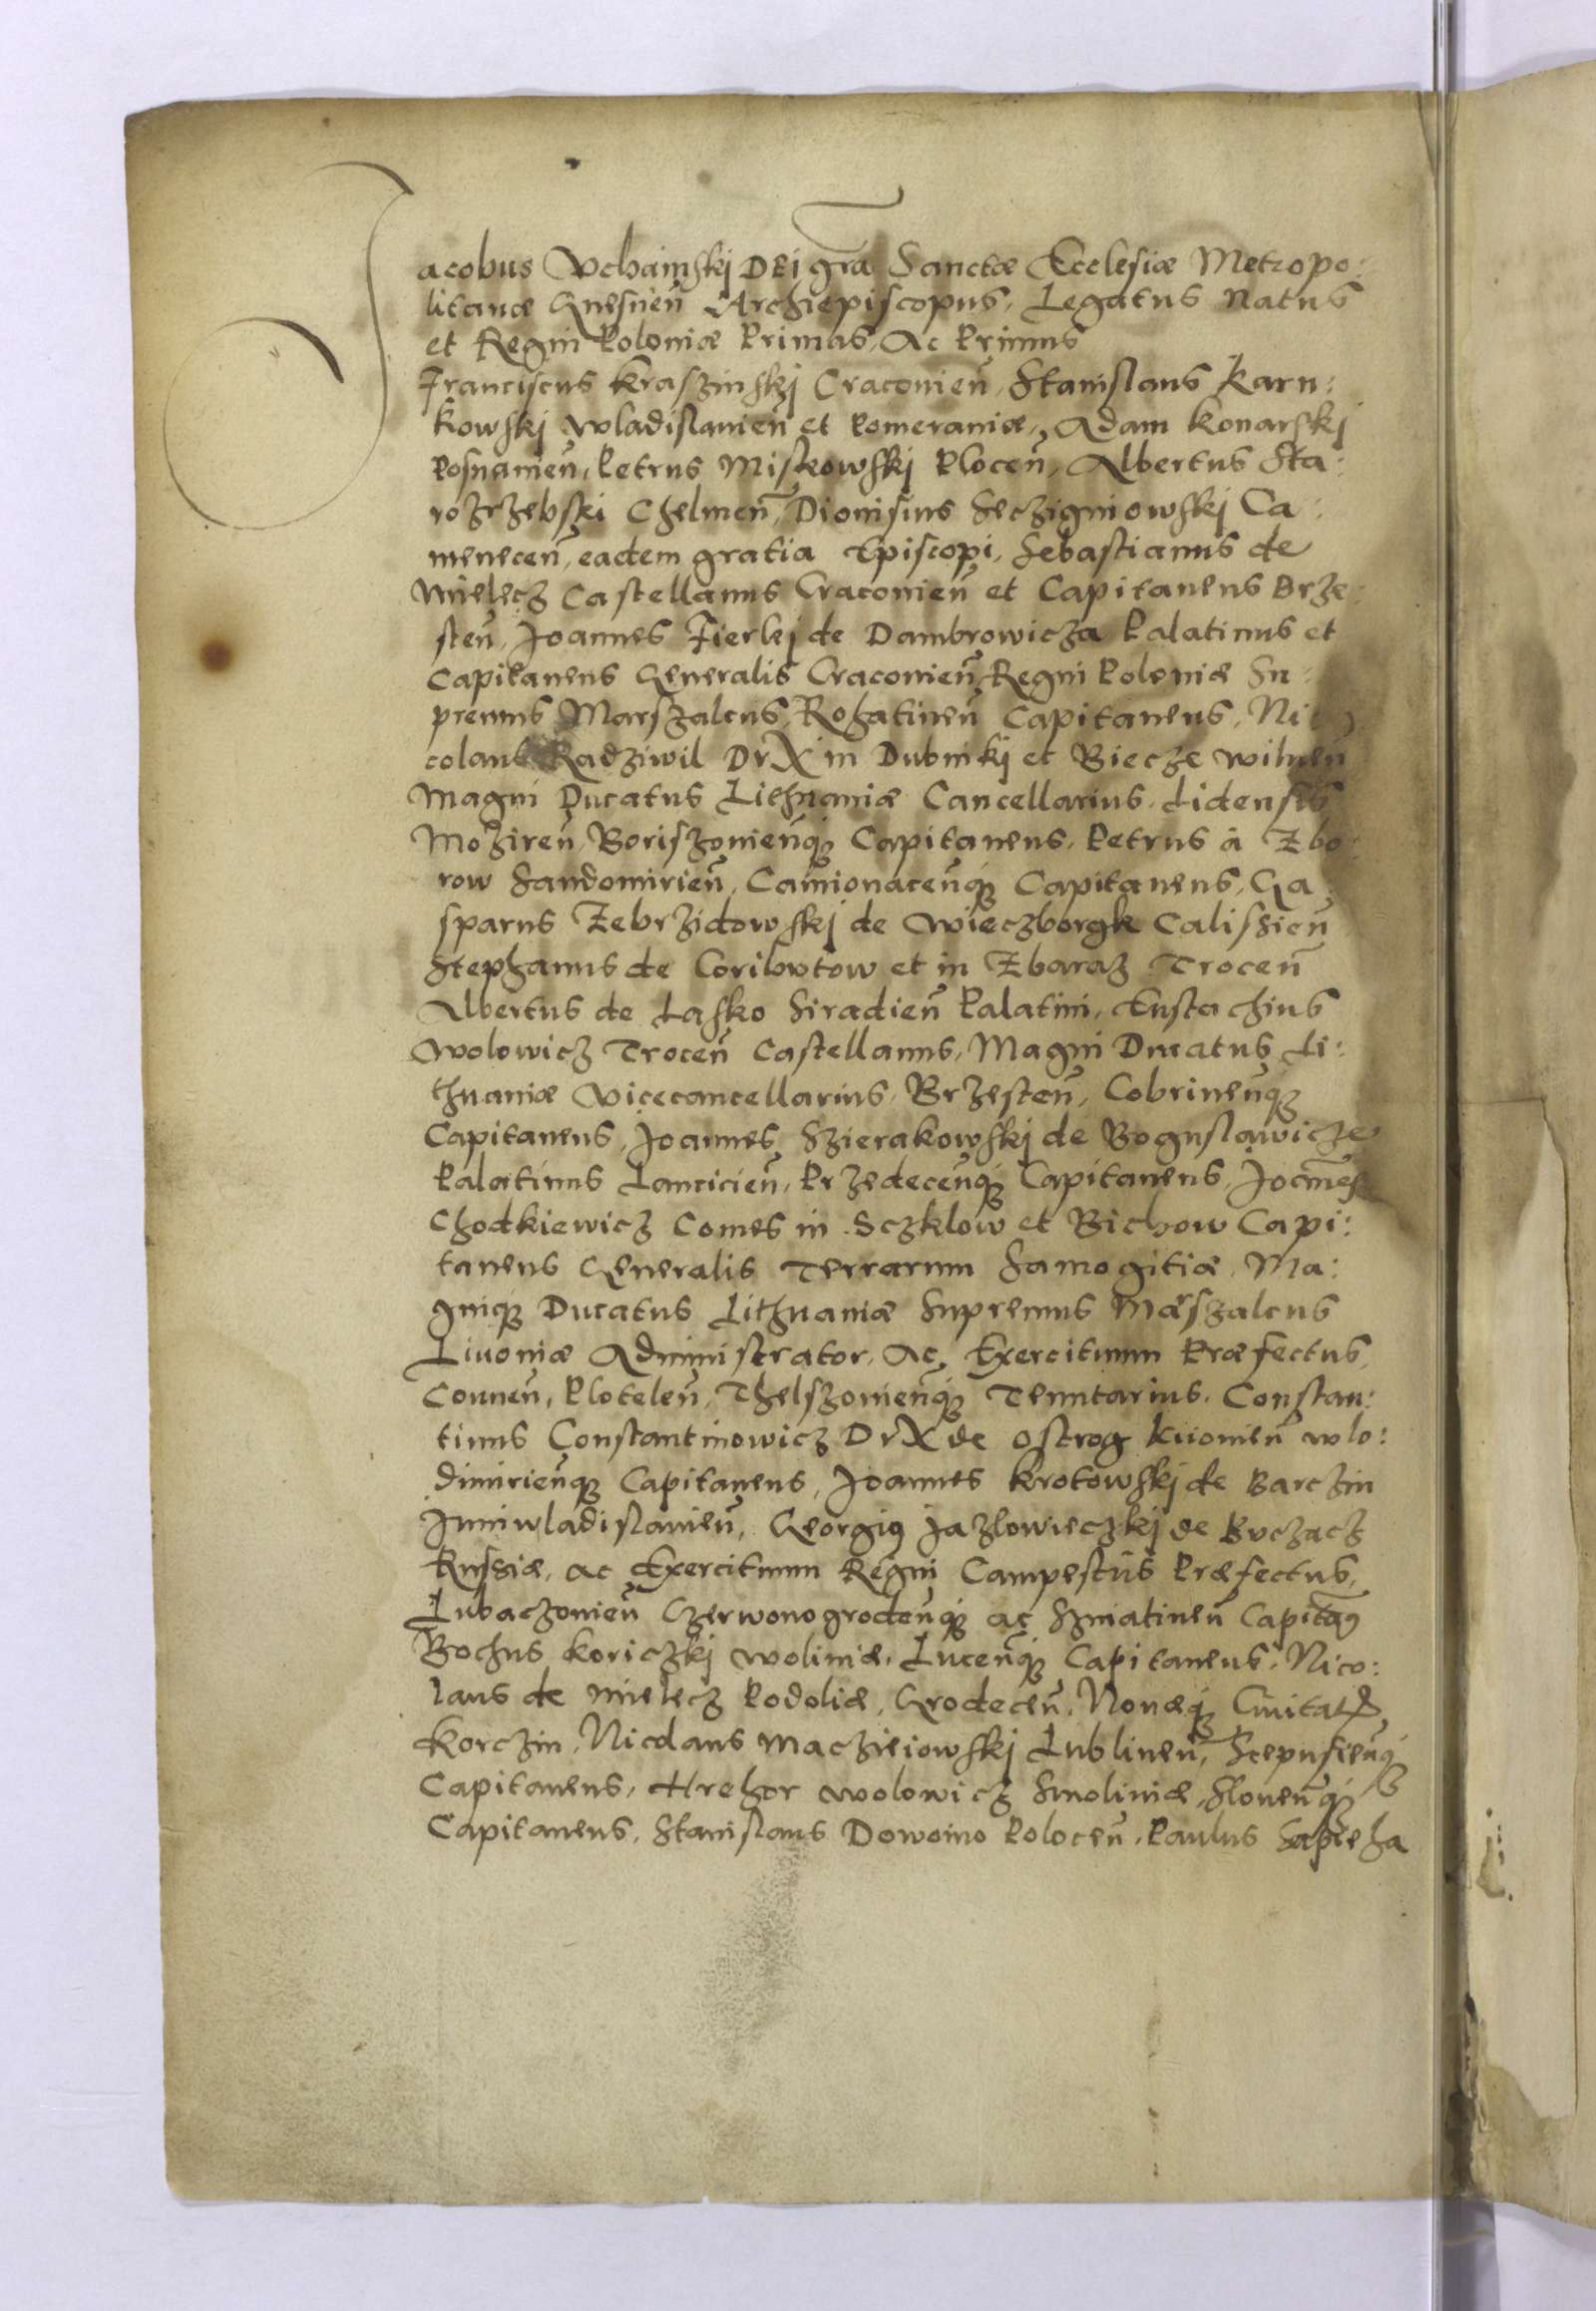 Jacobus Vchainskj DEj gr̃a Sanctæ Ecclesiæ Metropo:
litanæ Gnesneñ Archiepiscopus, Legatus Natus
et Regni Poloniæ Primas, Ac Primus
Franciscus Kraszinskj Cracovieñ, Stanislaus Karn:
kowskj Wladislavieñ et Pomeraniæ, Adam Konarskj
Posnanieñ, Petrus Miskowskj Ploceñ, Albertus Sta:
rozrzebski Chelmeñ, Dionisius Seczigniowskj Ca:
meneceñ, eadem gratia Episcopi, Sebastianus de
Mielecz Castellanus Cracovieñ et Capitaneus Brze:
steñ, Joannes Fierlej de Dambrowicza Palatinus et
Capitaneus Generalis Cracovieñ Regni Poloniæ Su:
premus Marszalcus, Rohatineñ Capitaneus, Ni
colaus Radziwil DVX in Dubinkj et Biecze Wilneñ
Magni Ducatus Lithuaniæ Cancellarius, Lidensis
Mozireñ, Boriszovieñq3 Capitaneus, Petrus à Zbo:
row Sandomirieñ, Camionaceñq3 Capitaneus, Ga
sparus Zebrzidowskj de Wieczborgk Calissieñ
Stephanus de Coribvtow et in Zbaraz Troceñ
Albertus de Lasko Siradieñ Palatini, Eustachius
Wolowicz Troceñ Castellanus, Magni Ducatus Li:
thuaniæ Vicecancellarius, Brzesteñ, Cobrineñq3
Capitaneus, Joannes Szierakowskj de Boguslawicze
Palatinus Lancicieñ, Przedeceñq3 Capitaneus, Joañes
Chodkiewicz Comes in Sczklow et Bichow Capi:
taneus Generalis Terrarum Samogitiæ, Ma:
gniq3 Ducatus Lithuaniæ Supremus Marszalcus
Livoniæ Administrator, Ac Exercituum Præfectus,
Couneñ, Ploteleñ, Thelszovieñq3 Tenutarius, Constan:
tinus Constantinowicz DVX de Ostrog Kiiovieñ Wlo:
dimirieñq3 Capitaneus, Joannes Krotowskj de Barczin
Juniwladislavieñ, Georgi9 Jazlowieczkj de Bvczacz
Russiæ, ac Exercituum Regni Campestris Præfectus,
Lubaczovieñ Czerwonogrodeñq3 ac Szniatineñ Capitãe9
Bochus Koriczkj Woliniæ, Luceñq3 Capitaneus, Nico:
laus de Mielecz Podoliæ, Grodeceñ, Novæq3 Civitat̃
Korczin, Nicolaus Macziejowskj Lublineñ, Scepusieñq3
Capitaneus, Hrehor Wolowicz Smoliniæ, Sloneñq3
Capitaneus, Stanislaus Dowoino Poloceñ, Paulus Sapieha